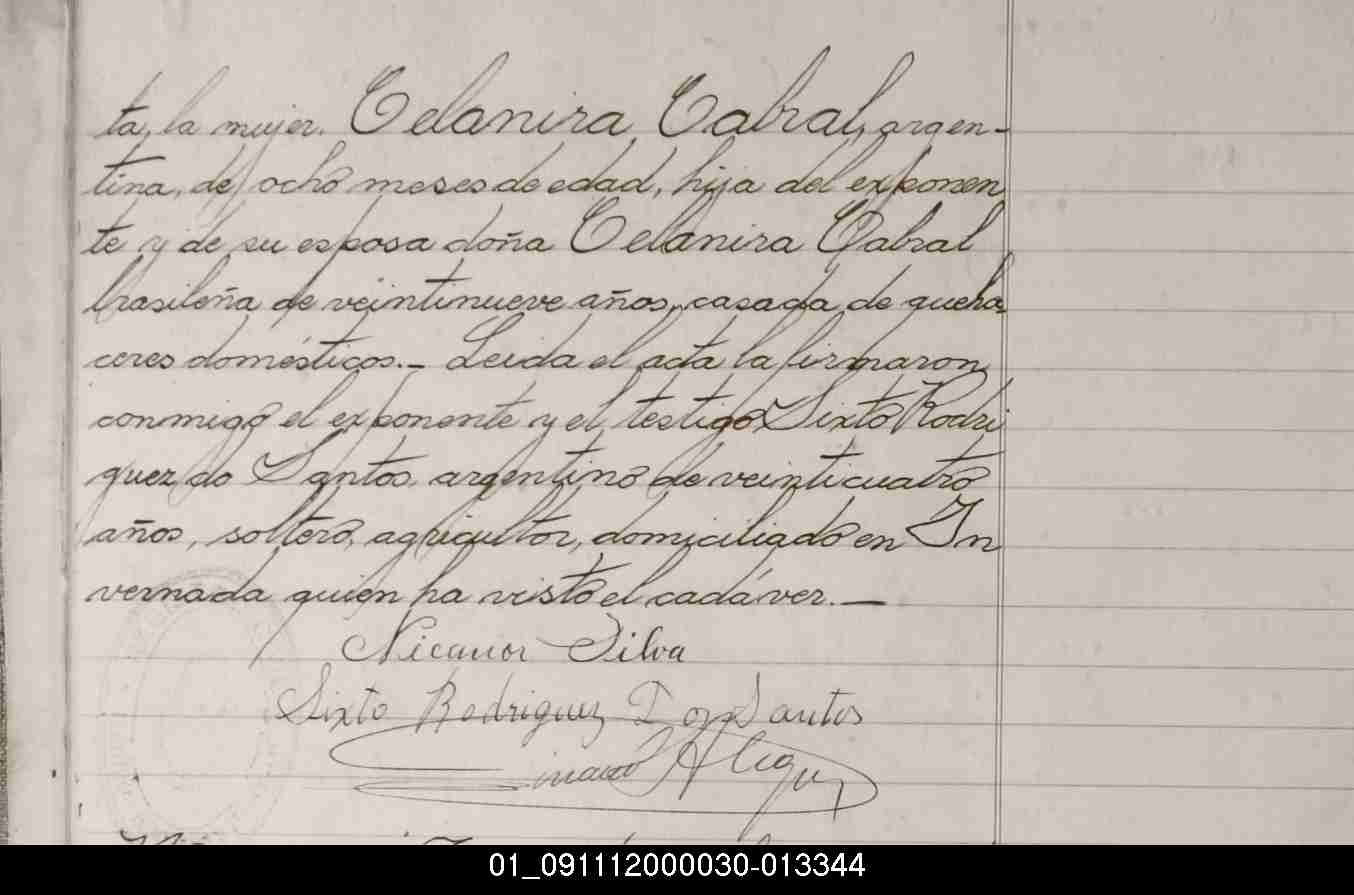 ta, la mujer. Celanira Cabral, argen-
tina, de ocho meses de edad, hija del exponen
te y de su esposa doña Celanira Cabral
brasileña de veintinueve años, casada de queha
ceres domésticos.- Leida el acta la firmaron
conmigo el exponente y el testigo Sixto Rodri
guez do Santos argentino de veinticuatro
años, soltero, agricultor, domiciliado en In
vernada quien ha visto el cadáver.—
Nicanor Silva
Sixto Rodriguez Dos Santos
01_091112000030-013344